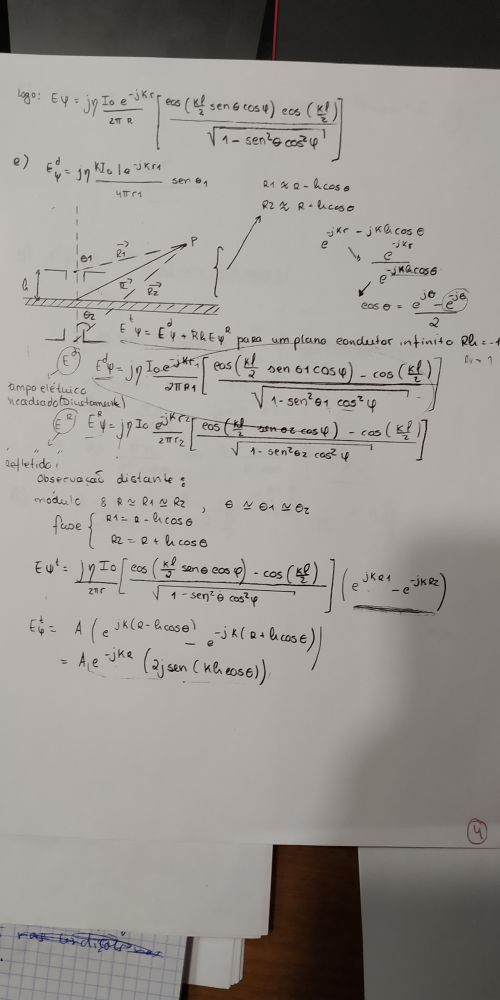 logo: Eψ = jη I₀ e^-jKr / 2π R [ cos(Kl/2 senθ cosφ) cos(Kl/2) / √(1 - sen²θ cos²φ) ]
e) E^d_ψ = jη K I₀ l e^-jKr1 / 4πr1 sen θ1
R1 ≈ R - h cosθ
R2 ≈ R + h cosθ
e^-jKr - jKh cosθ
e^-jKr / e^-jKh cosθ
cosθ = e^jθ - e^-jθ / 2
θ1 R1 P
h R R2
θ2
E^t_ψ = E^d_ψ + Rh Eψ^R para um plano condutor infinito Rh = -1
Rv = 1
E^d E^d_ψ = jη I₀ e^-jKr1 / 2πR1 [ cos(Kl/2 sen θ1 cosφ) - cos(Kl/2) / √(1 - sen²θ1 cos²φ) ]
ampo elétrico
(Diretamente)
E^R E^R_ψ = jη I₀ e^-jKr2 / 2πr2 [ cos(Kl/2 sen θ2 cosφ) - cos(Kl/2) / √(1 - sen²θ2 cos²φ) ]
refletido
Observação distante:
módulo R ≃ R1 ≃ R2 , θ ≃ θ1 ≃ θ2
fase { R1 = R - h cosθ
R2 = R + h cosθ
Eψ^t = jη I₀ / 2πr [ cos(Kl/2 senθ cosφ) - cos(Kl/2) / √(1 - sen²θ cos²φ) ] ( e^jKR1 - e^-jKR2 )
E^t_ψ = A ( e^jK(R-h cosθ) - e^-jK(R+h cosθ) )
= A, e^-jKR ( 2j sen (Kh cosθ) )
4